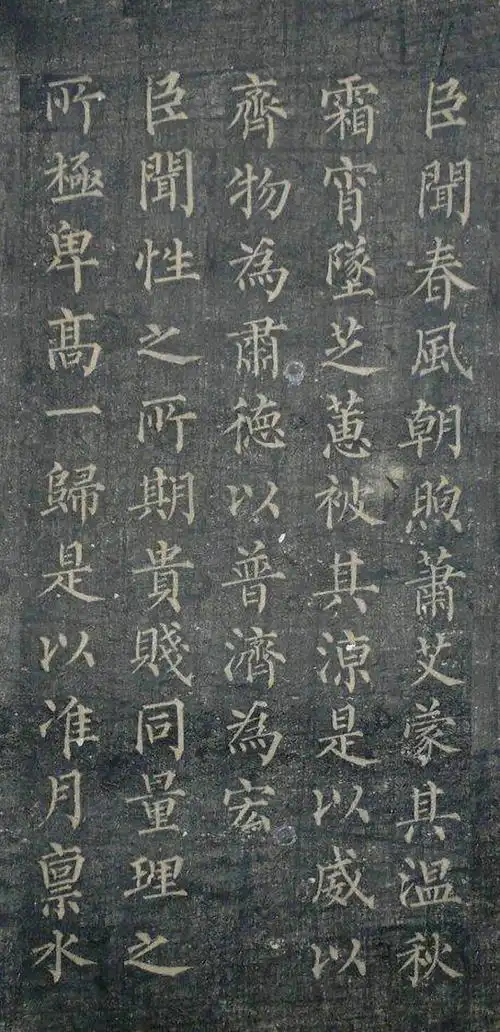 臣聞春風朝煦蕭艾蒙其温秋
霜宵墜芝蕙被其涼是以威以
齊物為肅德以普濟為宏
臣聞性之所期貴賤同量理之
所極卑高一歸是以准月禀水